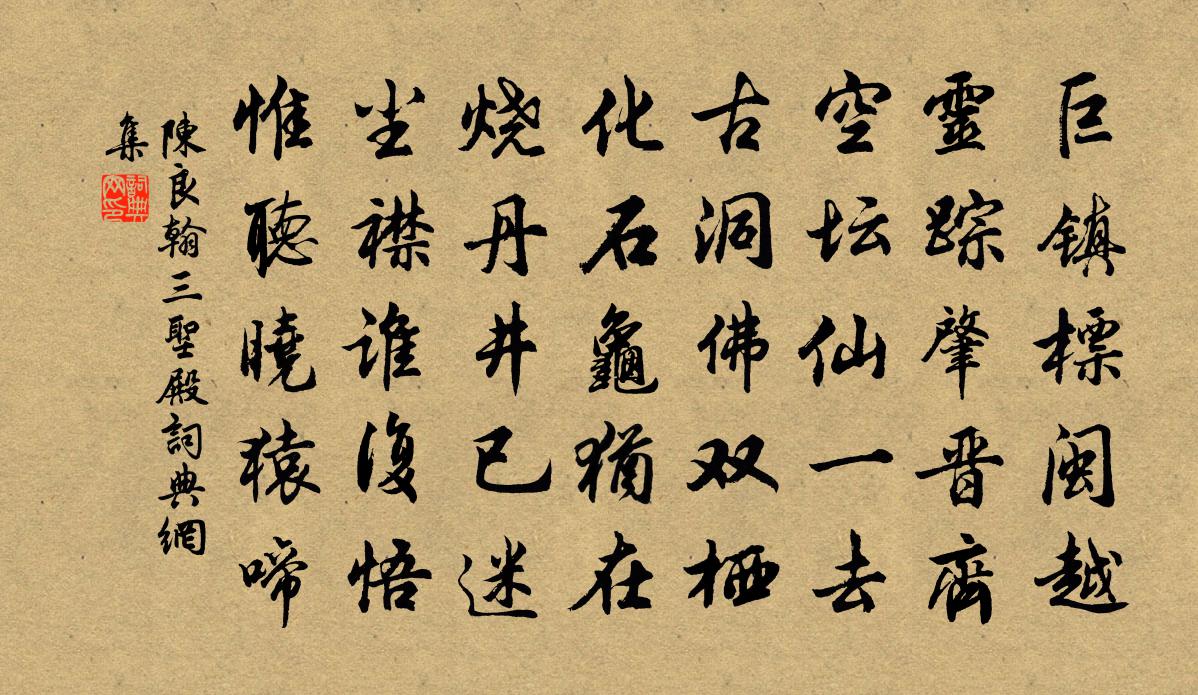 巨镇標闽越
靈踪肇晋齊
空坛仙一去
古洞佛双栖
化石龜猶在
烧丹井已迷
尘襟谁復悟
惟聽曉猿啼
陳良翰三聖殿詞典網
集
詞典
网印